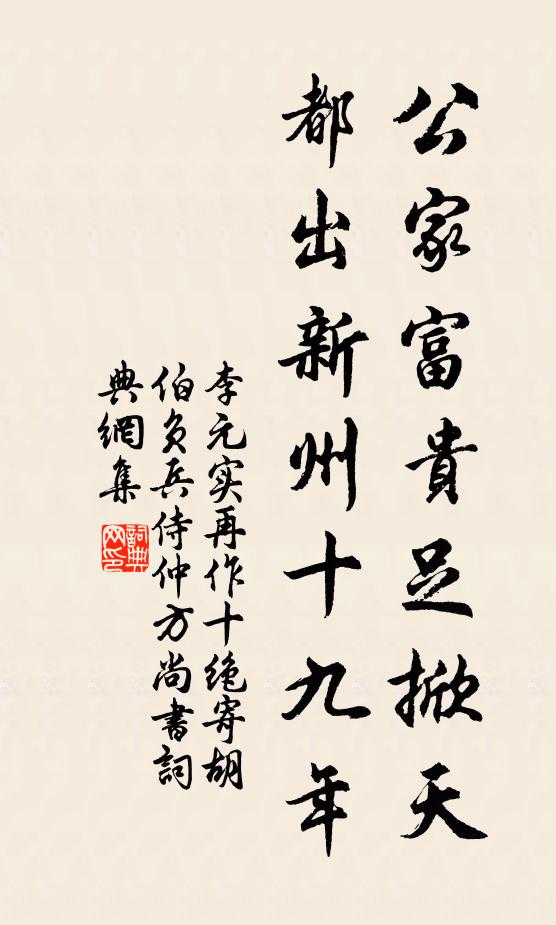 公家富貴足掀天
都出新州十九年
李元实再作十绝寄胡
伯负兵侍仲方尚書詞
典網集
詞典网印